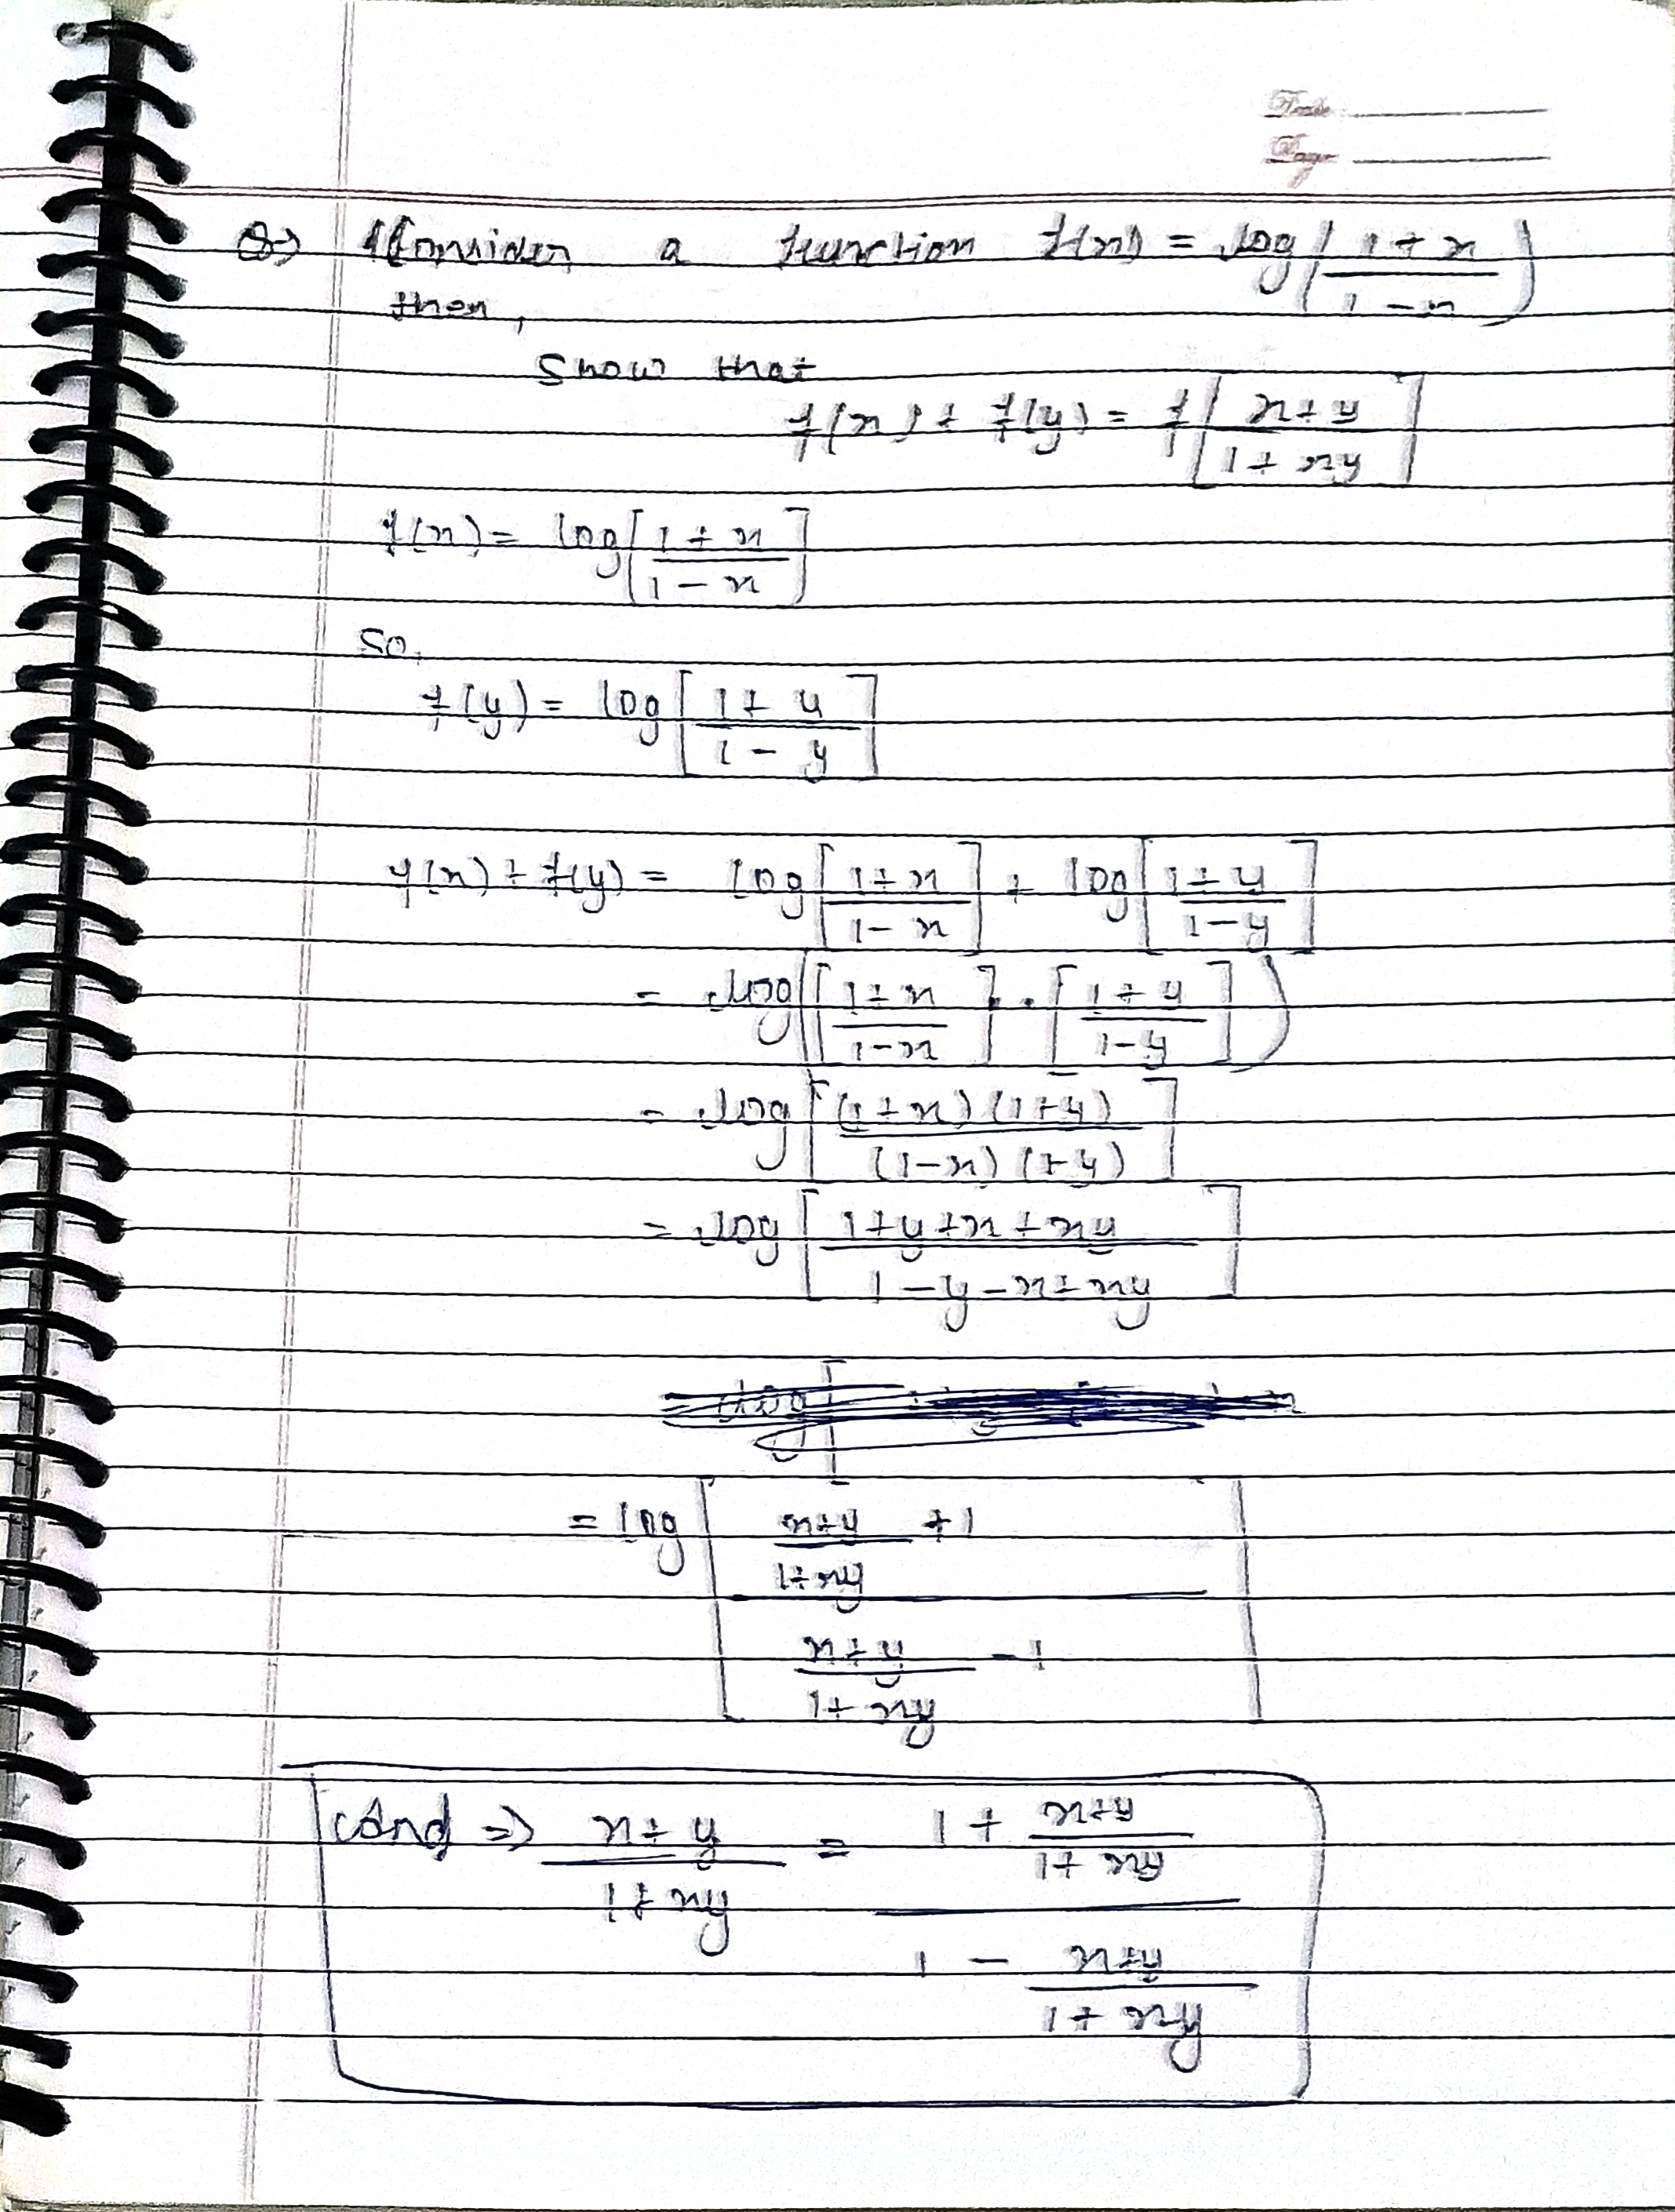 Date
Page
Q→ Consider a function f(x) = log(1+x / 1-x)
then,
Show that
f(x) + f(y) = f[x+y / 1+xy]
f(x) = log[1+x / 1-x]
So,
f(y) = log[1+y / 1-y]
f(x) + f(y) = log[1+x / 1-x] + log[1+y / 1-y]
= log([1+x / 1-x] . [1+y / 1-y])
= log[(1+x)(1+y) / (1-x)(1-y)]
= log[1+y+x+xy / 1-y-x+xy]
= log[(x+y / 1+xy + 1) / (x+y / 1+xy - 1)]
cond ⇒ x+y / 1+xy = (1 + x+y / 1+xy) / (1 - x+y / 1+xy)